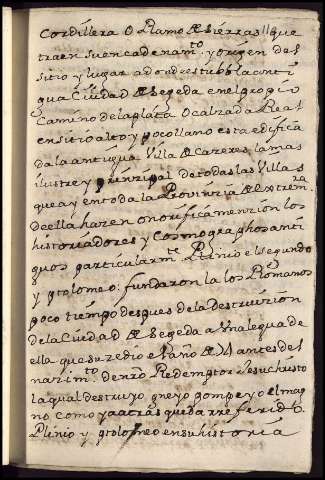 Cordillera O Ramo de sierras que
traen su encadenamto y origen del
sitio y lugar adonde estubo la anti
gua Ciudad de Segeda en el propio
Camino de la plata O calzada Real
en sitio alto y poco llano esta edifica
da la antigua Villa de Cazeres la mas
ilustre y prinzipal de todas las Villas
que ay en toda la Provinzia de Extremra
de ella hazen onorifica menzion los
historiadores y Cosmographos anti
guos particularmte Plinio el segundo
y ptolomeo: fundaron la los Romanos
poco tiempo despues de la Destruzion
de la Ciudad de Segeda a Una legua de
ella que suzedio el año de 74 antes del
nazimto de nro Redemptor Jesuchristo
la qual destruyo gneyo pompeyo el mag
no como ya atras queda rreferido.
Plinio y ptolomeo en su historia